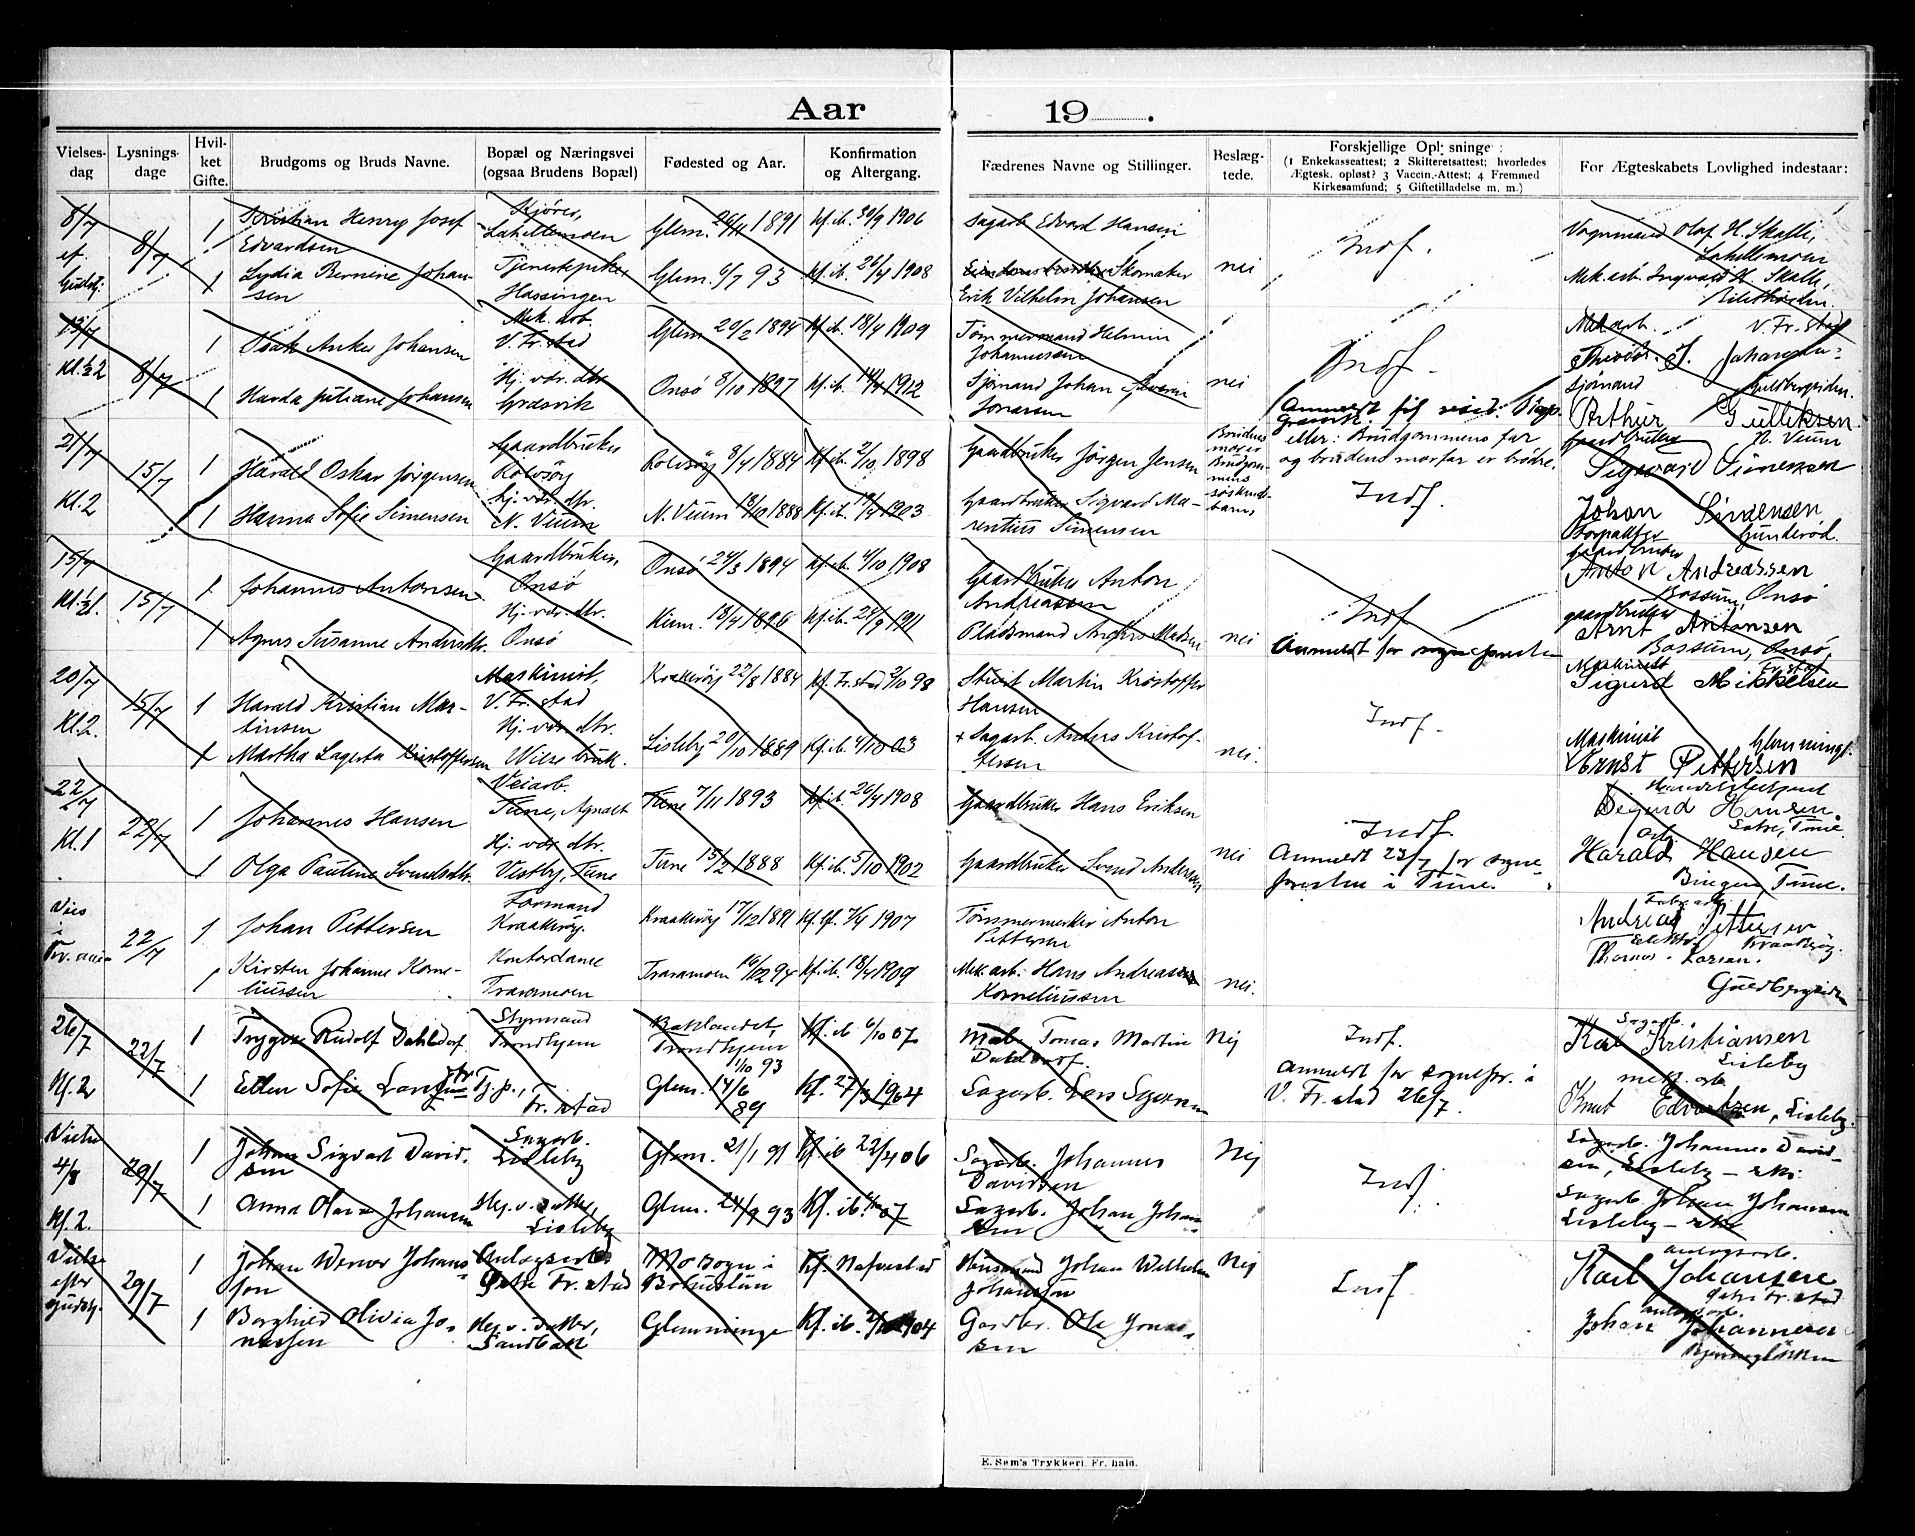 Aar 19 .
Vielses-dag
Lysnings-dage
Hvil-ket Gifte.
Brudgoms og Bruds Navne.
Bopæl og Næringsvei (ogsaa Brudens Bopæl)
Fødested og Aar.
Konfirmation og Altergang.
Fædrenes Navne og Stillinger.
Beslæg-tede.
Forskjellige Oplysninge: (1 Enkekasseattest; 2 Skifteretsattest; hvorledes Ægtesk. opløst? 3 Vaccin.-Attest; 4 Fremmed Kirkesamfund; 5 Giftetilladelse m. m.)
For Ægteskabets Lovlighed indestaar:
8/7 ef. Gudstj.
8/7
1 Kristian Henry Josef Edvardsen
Kjører, Lahellemoen
Glem. 26/11 1891
Kf. ib. 30/9 1906
Sagarb. Edvard Hansen
1 Lydia Bernine Johansen
Tjenestepike, Hassingen
Glem. 6/7 93
Kf. ib. 26/4 1908
Skomaker Erik Vilhelm Johansen
nei
Indf.
Vognmand Olaf H. Skalle, Lahellemoen
Mek. arb. Ingvald H. Skalle,
15/7 Kl. 1/2 2
8/7
1 Isak Anker Johansen
Mek. arb. V. Fr.stad
Glem. 20/2 1894
Kf. ib. 18/4 1909
Tømmermand Helmin Johannessen
1 Harda Juliane Johansen
Hj. vær. dtr. Græsvik
Onsø 8/10 1897
Kf. ib. 14/4 1912
Sjømand Johan Severin Jonassen
nei
Indf.
Mek arb. V. Fr. stad
J. Johansen
Sjømand Guldbergsiden.
21/7 Kl. 2
15/7
1 Harald Oskar Jørgensen
Gaardbruker Rolvsøy
Rolvsøy 8/4 1884
Kf. ib. 2/10 1898
Gaardbruker Jørgen Jensen
1 Hanna Sofie Simensen
Hj. vær. dtr. N. Veum
N. Veum 13/10 1888
Kf. ib. 19/4 1903
Gaardbruker Sigvard Marentius Simensen
Brudens mor er Brudgommens søskendbarn
eller: Brudgommens far og brudens morfar er brødre.
Indf.
Arthur Gulliksen
Gaardbruker N. Veum
Sigvard Simensen
Johan Simensen
Gunderød.
15/7 Kl. 1/2 1.
15/7
1 Johannes Antonsen
Gaardbruker, Onsø
Onsø 24/3 1894
Kf. ib. 4/10 1908
Gaardbruker Anton Andreassen
1 Agnes Susanne Andersdtr.
Hj. vær. dtr. Onsø
Kf. ib. 24/9 1911
Pladsmand Anders Madsen
nei
Indf.
Anmeldt for sognepresten
Gaardbruker Anton Andreassen
Bossum, Onsø
Gaardbruker Arnt Antonsen
Bossum, Onsø,
20/7 Kl. 2.
15/7
1 Harald Kristian Martinsen
Maskinist, V. Fr. stad
Kraakerøy 22/8 1884
Kf. Fr. stad 2/10 98
Martin Kristoffer Hansen
1 Martha Lagerta Kristoffersen
Hj. vær. dtr.
Lisleby 20/10 1889
Kf. ib. 4/10 03
+ Sagarb. Anders Kristoffersen
nei.
Indf.
Maskinist Fr. stad
Sigurd Mikkelsen
Maskinist Glemminge.
Ernst Pettersen
22/7 Kl. 1
22/7
1 Johannes Hansen
Veiarb. Tune, Agnalt
Tune 7/11 1893
Kf. ib. 26/4 1908
Gaardbruker Hans Eriksen
1 Olga Pauline Svendsdtr.
Hj. vær. dtr. Vestby, Tune
Tune 15/2 1888
Kf. ib. 5/10 1902
Gaardbruker Svend Andersen
nei
Indf.
Anmeldt 23/7 for sogne-presten i Tune.
Sigurd Hansen.
Tune.
arb. Harald Hansen
Tune.
Vies i Fr.
22/7
1 Johan Pettersen
Formand Kraakerøy.
Kraakerøy 17/12 1891
Kf. 7/4 1907
Tømmermerker Anton Pettersen
1 Kirsten Johanne Korneliussen
Kontordame Traramoen
Traramoen 16/12 94
Kf. ib. 18/4 1909
Mek. arb. Hans Andreas Korneliussen
nei.
Andreas Pettersen
Kraakerøy.
Thomas Larsen.
Guldbergsiden
26/7 Kl. 2
22/7
1 Trygve Rudolf Dahldorf
Styrmand Trondhjem
Baklandet, Trondhjem 1/10 93
Kf. ib 6/10 07
Tomas Martin Dahldorf.
1 Ellen Sofie
Tj. p., Fr. stad
Glem. 14/6 89
Kf. 27/3 1904
Sagarb. Lars
Nej
Indf.
Anmeldt for sognepr. i V. Fr. stad 26/7.
Sagarb. Karl Kristiansen
Lisleby
mek. arb.
Knut Edvartsen, Lisleby.
Vies 4/8 Kl. 2.
29/7
1 Johan Sigvart Davidsen
Sagarb. Lisleby
Glem. 21/1 91
Kf. ib 22/4 06
Sagarb. Johannes Davidsen
1 Anna Olava Johansen
Hj. v. datter, Lisleby
Glem. 24/9 93
Kf. ib. 07
Sagarb. Johan Johansen
Nej
Indf.
Sagarb. Johannes Davidsen, Lisleby
Sagarb. Johan Johansen Lisleby
Vies efter Gudstj.
29/7
1 Johan Werner Johansson
Anlægsarb. Fr. stad
Mo Sogn i Bohuslän
Kf. Nafverstad
Husmand Johan Wilhelm Johansson
1 Borghild Olivia Jonassen
Hj. v. datter, Sandbæk
Glemminge
Kf. ib. 1904
Gardbr. Ole Jonassen
Nej
Indf.
anlægsarb.
Karl Johansen
Fr. stad
anlægsarb.
Johan Johannesen
E. Sem's Trykkeri, Fr. hald.